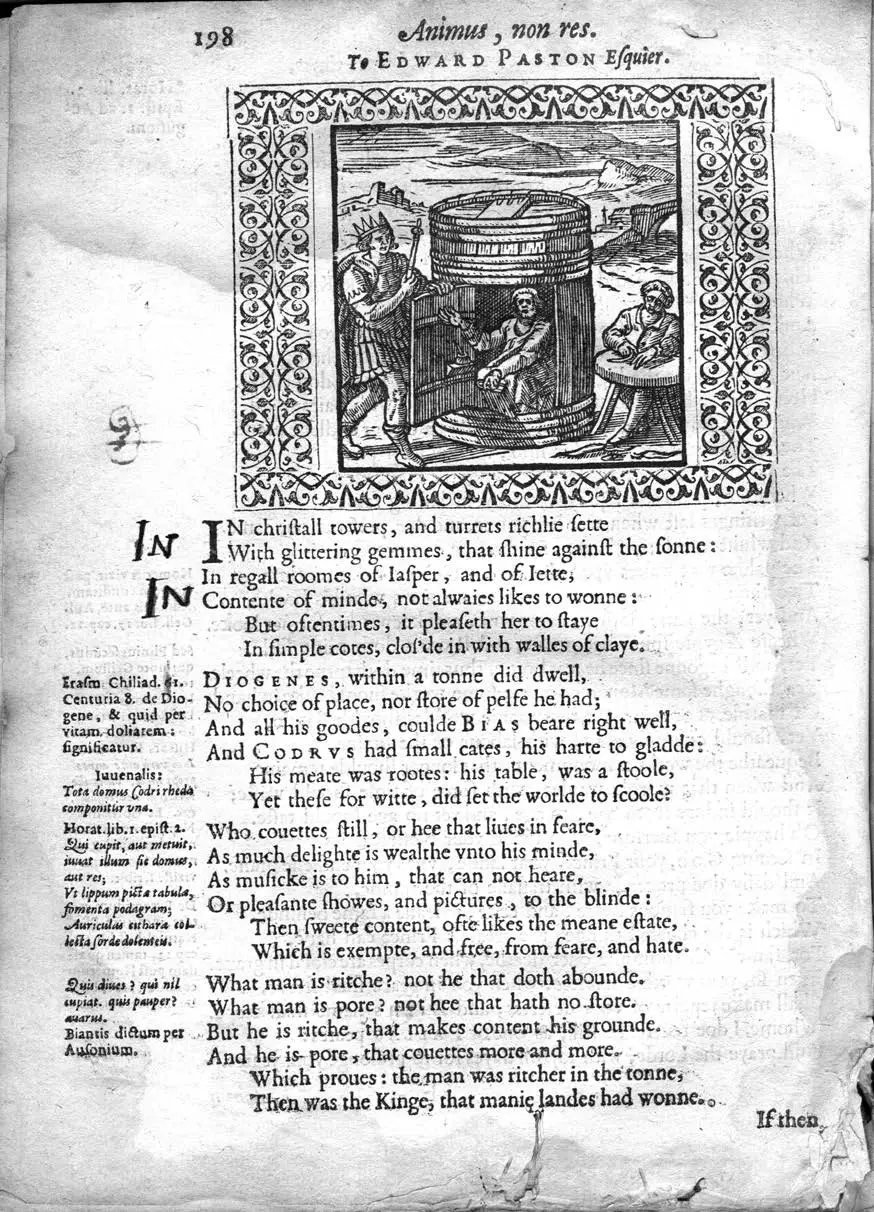 198
Animus, non res.
To EDWARD PASTON Esquier.
IN
IN christall towers, and turrets richlie sette
With glittering gemmes, that shine against the sonne:
In regall roomes of Iasper, and of Iette,
IN
Contente of minde, not alwaies likes to wonne:
But oftentimes, it pleaseth her to staye
In simple cotes, clos'de in with walles of claye.
Erasm Chiliad. 61.
Centuria 8. de Dio-
gene, & quid per
vitam doliarem:
significatur.
DIOGENES, within a tonne did dwell,
No choice of place, nor store of pelfe he had;
And all his goodes, coulde BIAS beare right well,
And CODRVS had small cates, his harte to gladde:
His meate was rootes: his table, was a stoole,
Yet these for witte, did set the worlde to scoole?
Iuuenalis:
Tota domus Codri rheda
componitur vna.
Horat. lib. 1. epist. 2.
Qui cupit, aut metuit,
iuuat illum sic domus,
aut res;
Vt lippum picta tabula,
fomenta podagram;
Auriculas cithara col-
lecta sorde dolenteis.
Who couettes still, or hee that liues in feare,
As much delighte is wealthe vnto his minde,
As musicke is to him, that can not heare,
Or pleasante showes, and pictures, to the blinde:
Then sweete content, ofte likes the meane estate,
Which is exempte, and free, from feare, and hate.
Quis diues? qui nil
cupiat. quis pauper?
auarus.
Biantis dictum per
Ausonium.
What man is ritche? not he that doth abounde.
What man is pore? not hee that hath no store.
But he is ritche, that makes content his grounde.
And he is pore, that couettes more and more.
Which proues: the man was ritcher in the tonne,
Then was the Kinge, that manie landes had wonne.
If then,